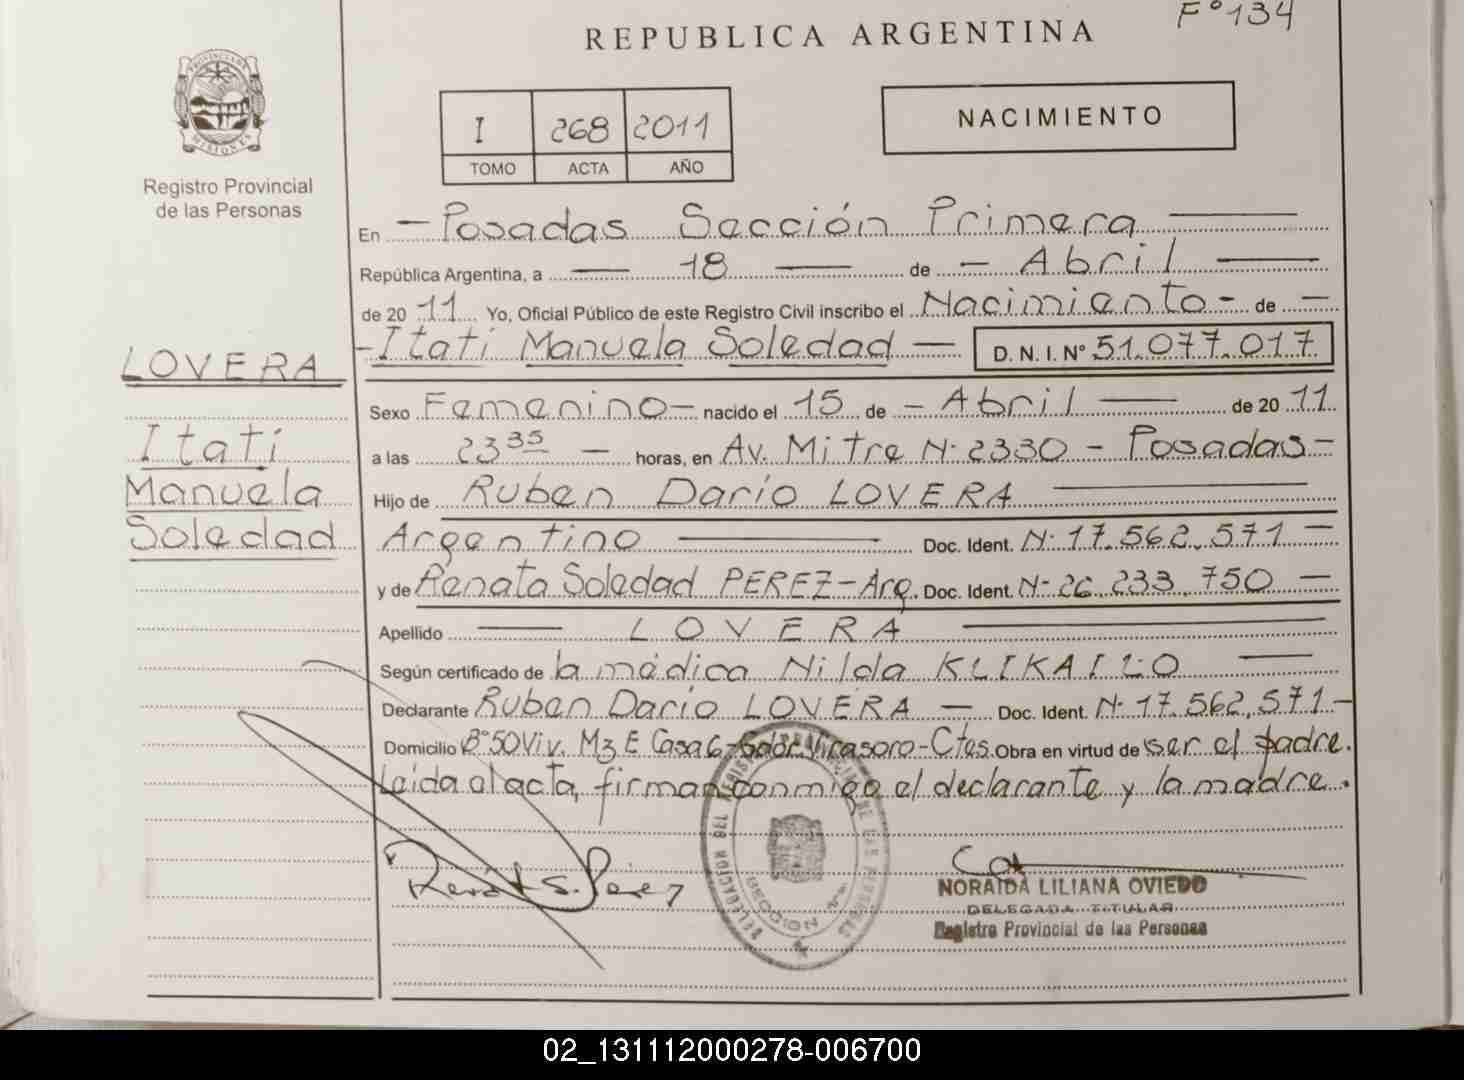 Fº 134
REPUBLICA ARGENTINA
PROVINCIA DE
MISIONES
Registro Provincial
de las Personas
I 268 2011
TOMO ACTA AÑO
NACIMIENTO
En - Posadas Sección Primera
República Argentina, a 18 de - Abril
de 20 11 Yo, Oficial Público de este Registro Civil inscribo el Nacimiento - de -
- Itatí Manuela Soledad - D. N. I. Nº 51.077.017
LOVERA
Itatí
Manuela
Soledad
Sexo Femenino - nacido el 15 de - Abril de 20 11
a las 23 35 - horas, en Av. Mitre N· 2330 - Posadas -
Hijo de Ruben Darío LOVERA
Argentino Doc. Ident. N· 17.562.571 -
y de Renata Soledad PEREZ - Arg. Doc. Ident. N· 26.233.750 -
Apellido LOVERA
Según certificado de la médica Nilda
Declarante Ruben Darío LOVERA - Doc. Ident. N· 17.562.571 -
Domicilio Bº 50 Viv. Mz E Casa 6 - Gdor. Virasoro - Ctes. Obra en virtud de ser el padre.
Leida el acta, firman conmigo el declarante y la madre.
Renata S. Perez
DELEGACION DEL REGISTRO PROVINCIAL DE LAS PERSONAS
SECCION 1ª
NORAIDA LILIANA OVIEDO
DELEGADA TITULAR
Registro Provincial de las Personas
02_131112000278-006700